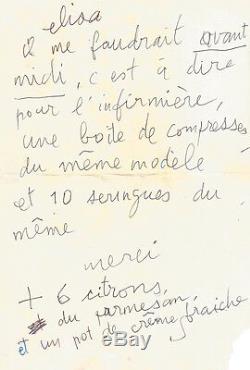 elisa
il me faudrait avant
midi, c'est à dire
pour l'infirmière,
une boîte de compresses
du même modèle
et 10 seringues du
même
merci
+ 6 citrons,
du parmesan,
et un pot de crême fraiche
ebay